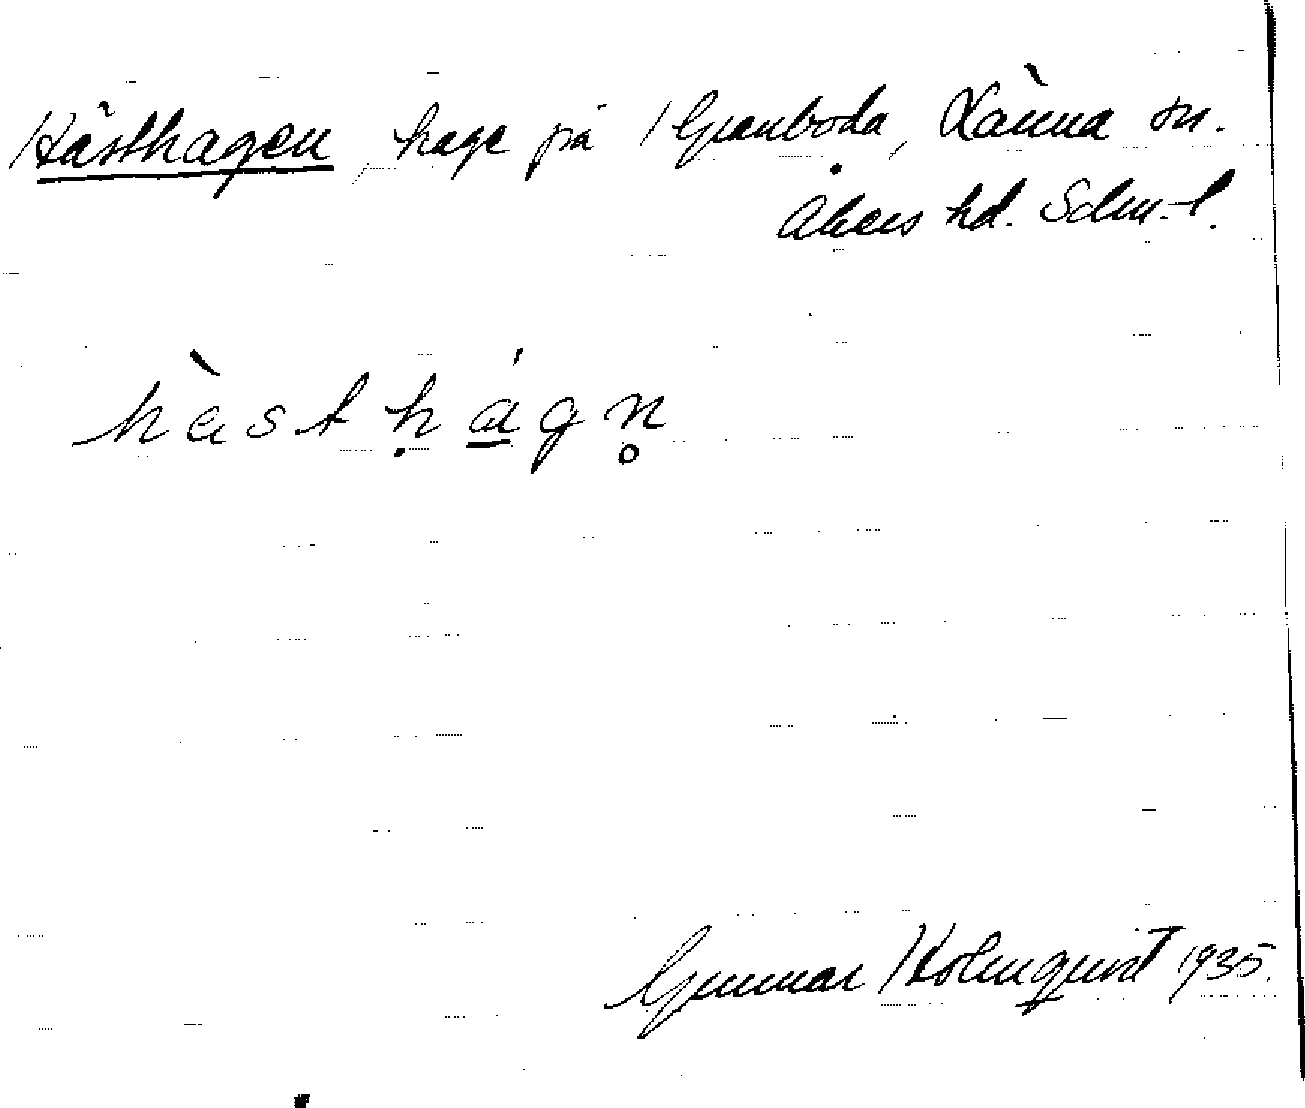 Hästhagen, hage på Granboda, Länna sn.
Åkers hd. Södm. l.
hàsthágn̥
Gunnar Holmquist 1935.